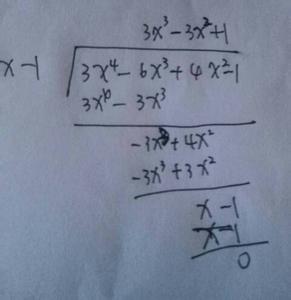 3x³-3x²+1
x-1
3x⁴-6x³+4x²-1
3x⁴-3x³
-3x³+4x²
-3x³+3x²
x-1
x-1
0